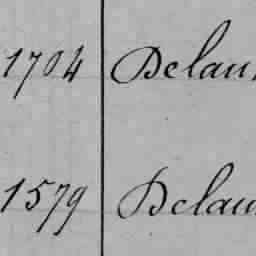 1704 Delau
1579 Delau